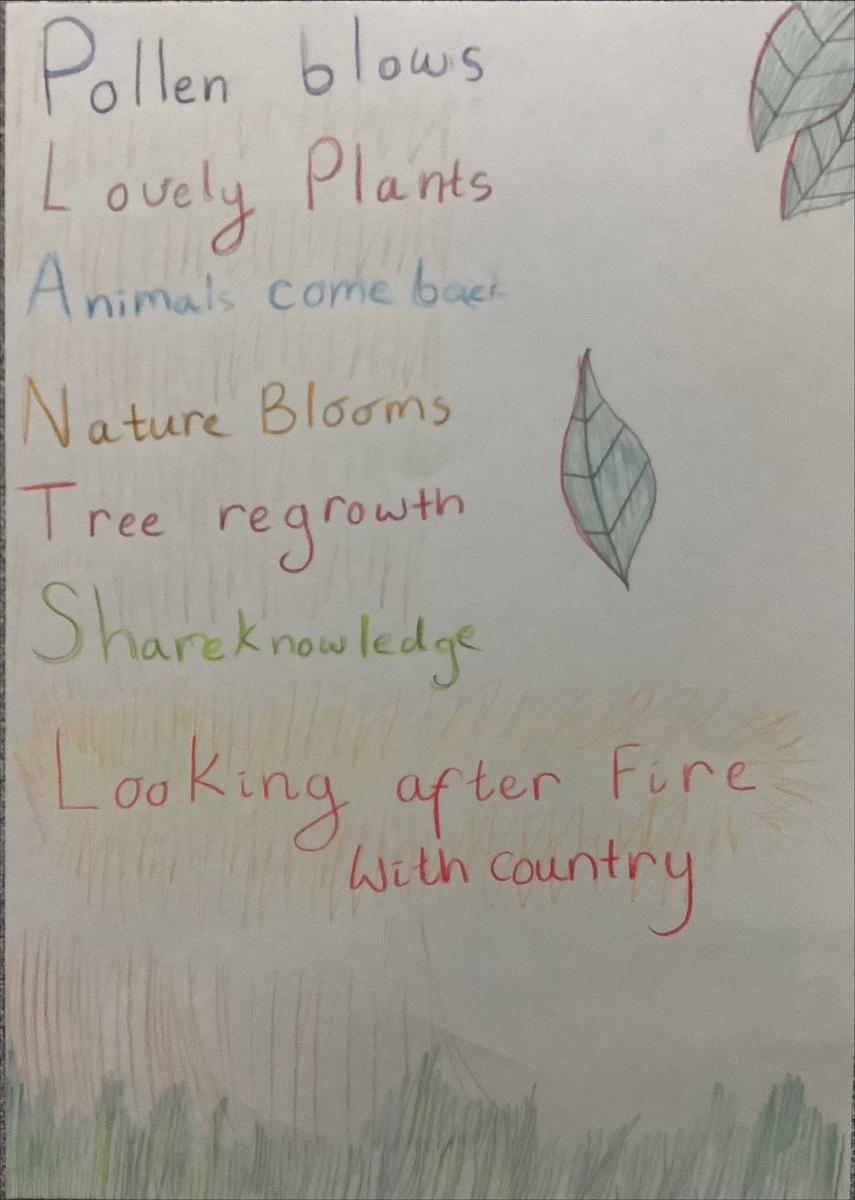 Pollen blows
Lovely Plants
Animals come back
Nature Blooms
Tree regrowth
Share knowledge
Looking after Fire
With country